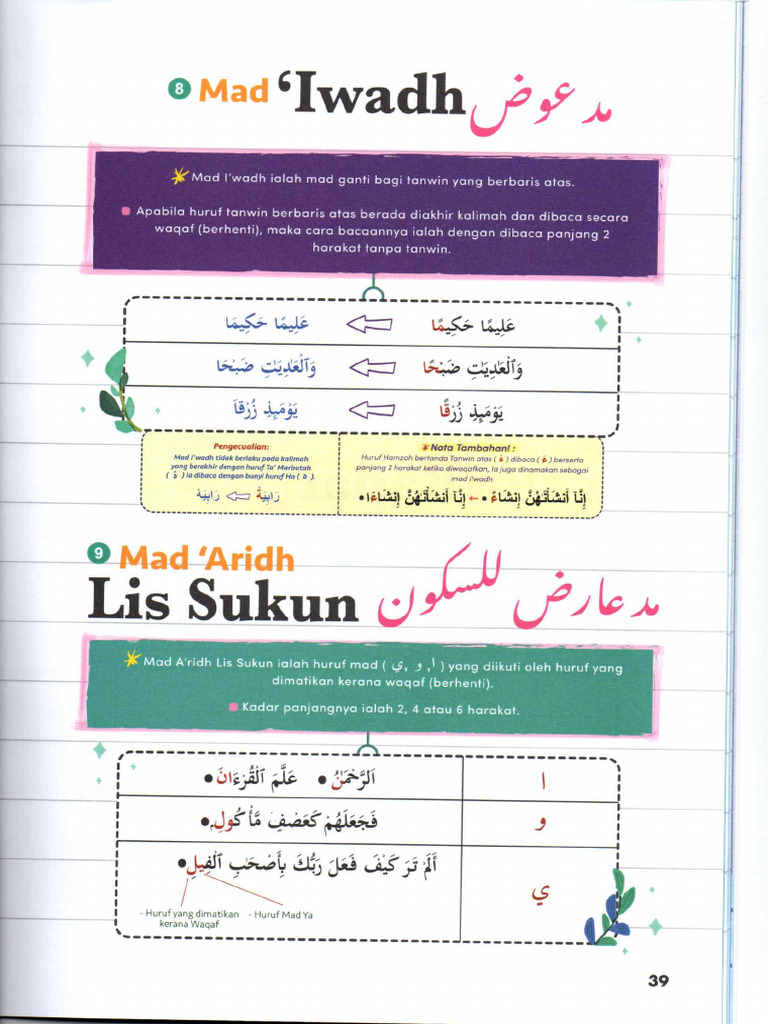 8 Mad ‘Iwadh مد عوض
Mad I'wadh ialah mad ganti bagi tanwin yang berbaris atas.
Apabila huruf tanwin berbaris atas berada diakhir kalimah dan dibaca secara
waqaf (berhenti), maka cara bacaannya ialah dengan dibaca panjang 2
harakat tanpa tanwin.
عَلِيمًا حَكِيمًا عَلِيمًا حَكِيمَا
وَٱلْعَٰدِيَٰتِ ضَبْحًا وَٱلْعَٰدِيَٰتِ ضَبْحَا
يَوْمَئِذٍ زُرْقًا يَوْمَئِذٍ زُرْقَا
Pengecualian:
Mad I'wadh tidak berlaku pada kalimah
yang berakhir dengan huruf Ta' Marbutah
( ة ) ia dibaca dengan bunyi huruf Ha ( ه ).
رَابِيَةً رَابِيَهْ
Nota Tambahan! :
Huruf Hamzah bertanda Tanwin atas ( ءً ) dibaca ( ءَ ) berserta
panjang 2 harakat ketika diwaqafkan, Ia juga dinamakan sebagai
mad i'wadh
إِنَّآ أَنشَأْنَٰهُنَّ إِنشَآءً • ← إِنَّآ أَنشَأْنَٰهُنَّ إِنشَآءَا •
9 Mad ‘Aridh
Lis Sukun مد عارض للسكون
Mad A'ridh Lis Sukun ialah huruf mad ( ا, و, ي ) yang diikuti oleh huruf yang
dimatikan kerana waqaf (berhenti).
Kadar panjangnya ialah 2, 4 atau 6 harakat.
ا ٱلرَّحْمَٰنُ • عَلَّمَ ٱلْقُرْءَانَ •
و فَجَعَلَهُمْ كَعَصْفٍ مَّأْكُولٍۭ •
ي أَلَمْ تَرَ كَيْفَ فَعَلَ رَبُّكَ بِأَصْحَٰبِ ٱلْفِيلِ •
- Huruf yang dimatikan - Huruf Mad Ya
kerana Waqaf
39